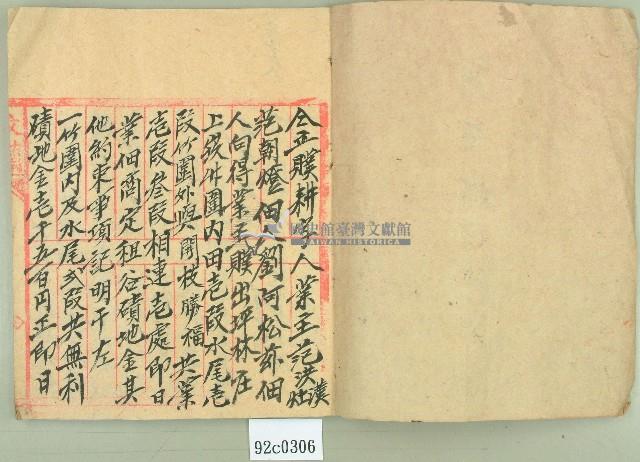 仝正贌耕字人業主范洪漢灶
范朝燈佃人劉阿松茲佃
人向得業主贌出坪林庄
上坎竹圍內田壱段水尾壱
段竹圍外與開枝勝福共業
壱段叁段相連壱處即日
業佃商定租谷磧地金其
他約束事項記明于左
一竹圍內及水尾弍段共無利
磧地金壱千五百円正即日
國史館臺灣文獻館
TAIWAN HISTORICA
92c0306